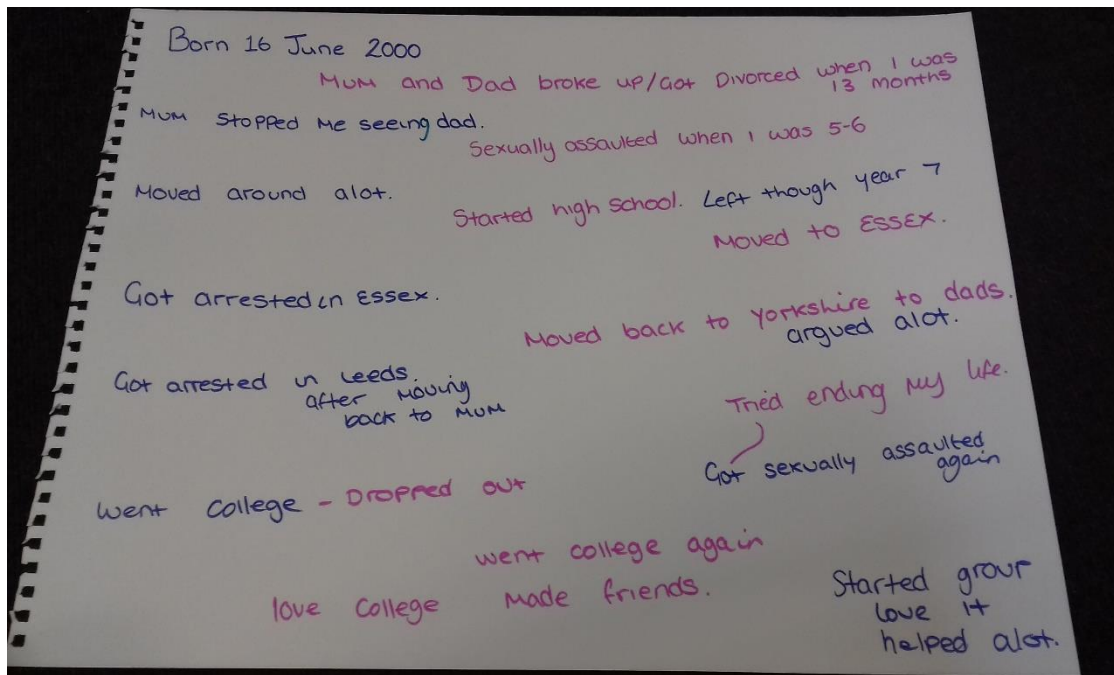 Born 16 June 2000
Mum and Dad broke up/Got Divorced when I was
13 months
Mum stopped me seeing dad.
Sexually assaulted when I was 5-6
Moved around alot.
Started high school. Left though year 7
Moved to Essex.
Got arrested in Essex.
Moved back to Yorkshire to dads.
argued alot.
Got arrested in Leeds.
after moving
back to mum
Tried ending my life.
Got sexually assaulted
again
went college - Dropped out
went college again
love college made friends.
Started group
love it
helped alot.